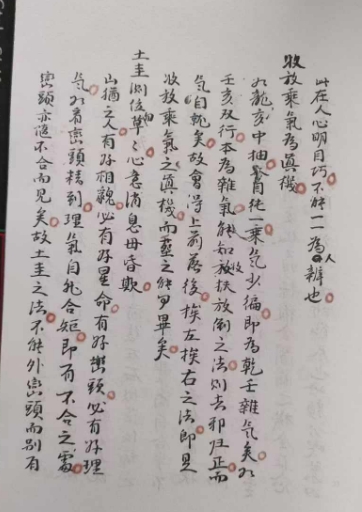 此在人心明目巧不能一一為人辨也
收放乘氣為真機
如龍亥中抽脊純一乘氣少偏即為乾壬雜氣矣如
壬亥双行本為雜氣能知收扶放倒之法則去邪歸正而
氣自純矣故會得上前落後挨左挨右之法即是
收放乘氣之真機而葬之能事畢矣
土圭測候草心意消息毋昏欺
山猶之人有好相貌必有好星命有好巒頭必有好理
氣如看巒頭精到理氣自孔合矩即有不合之處
巒頭亦隱不合而見矣故土圭之法不能外巒頭而別有